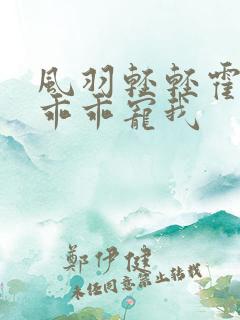 風羽輕輕霍
乖乖寵我
鄭伊健
未經同意禁止轉載